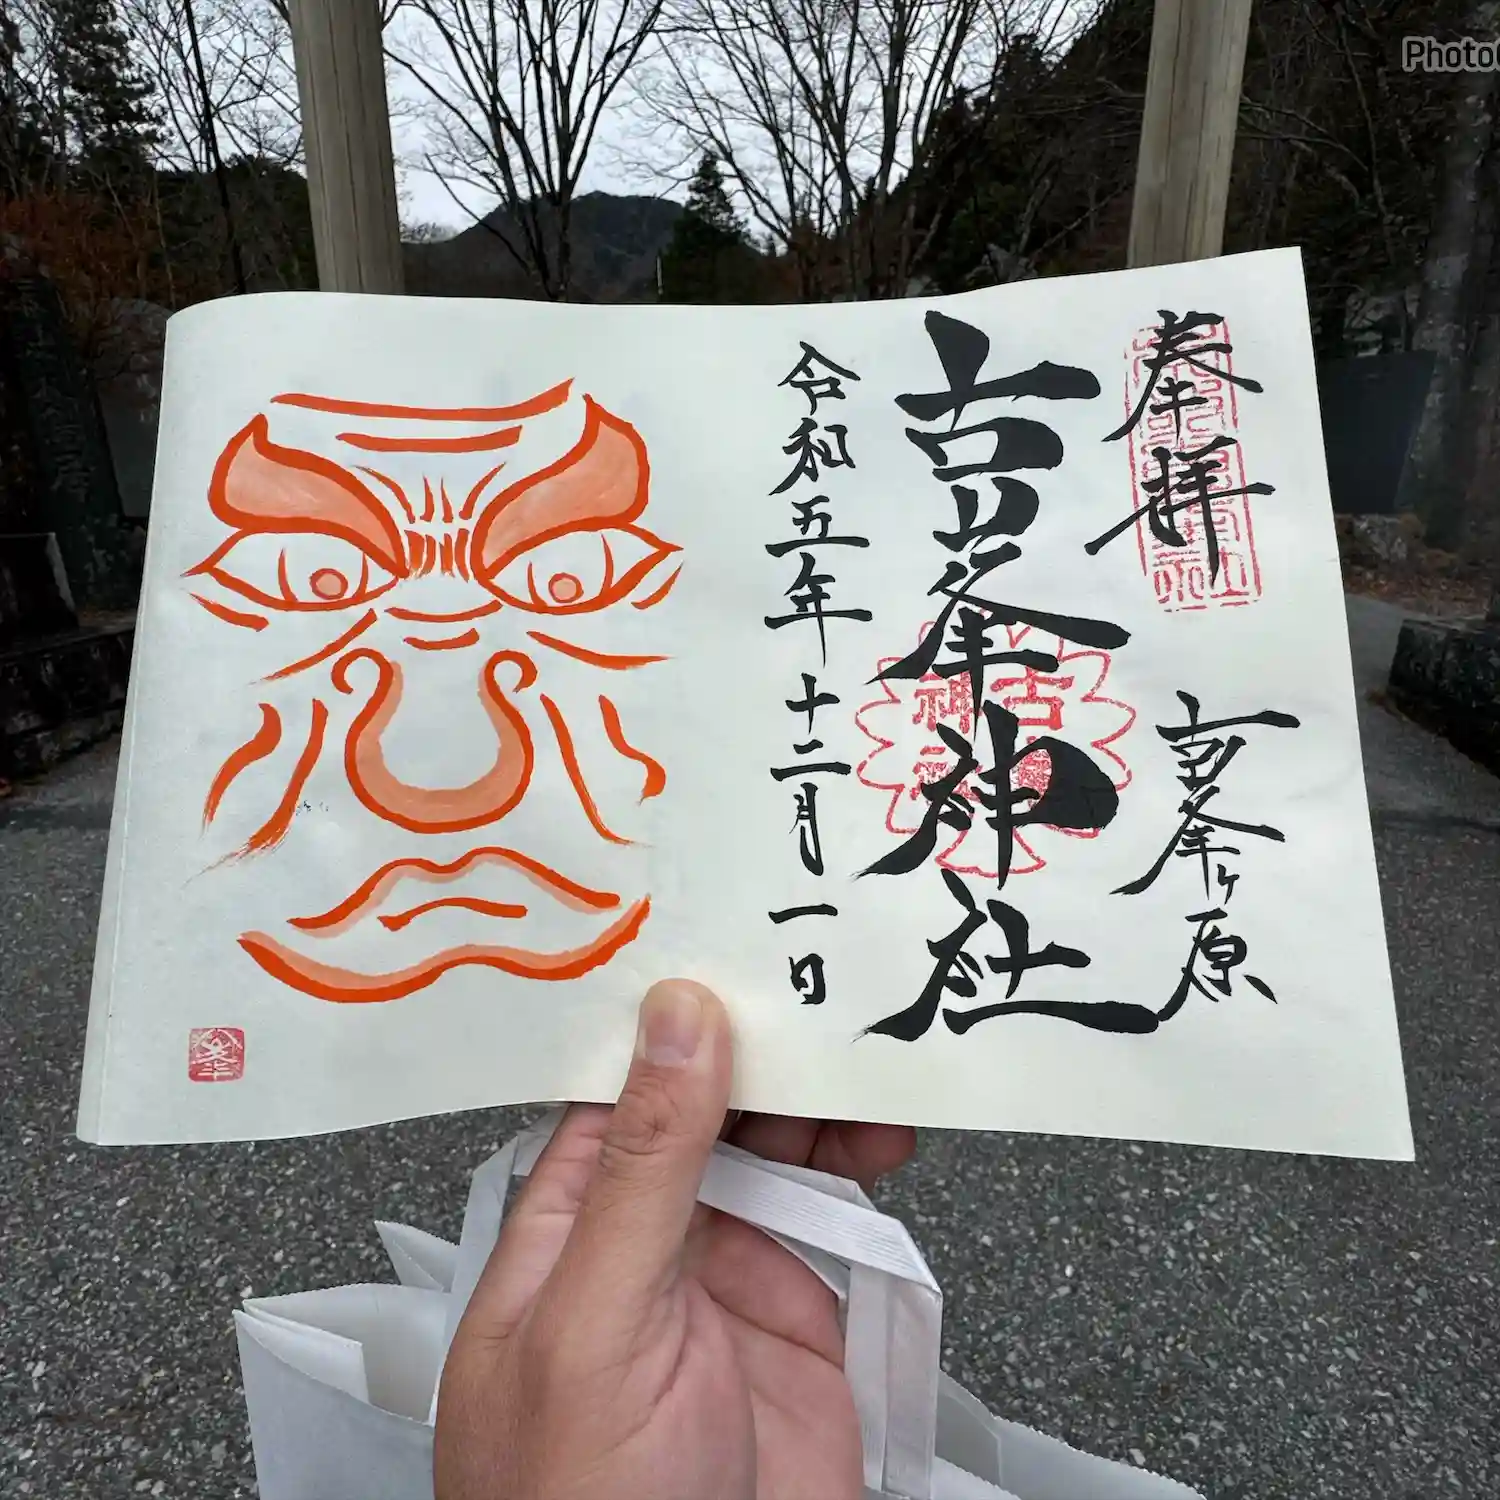 奉拝
古峯ヶ原
古峯神社
令和五年十二月一日
古
神
峯
Photo